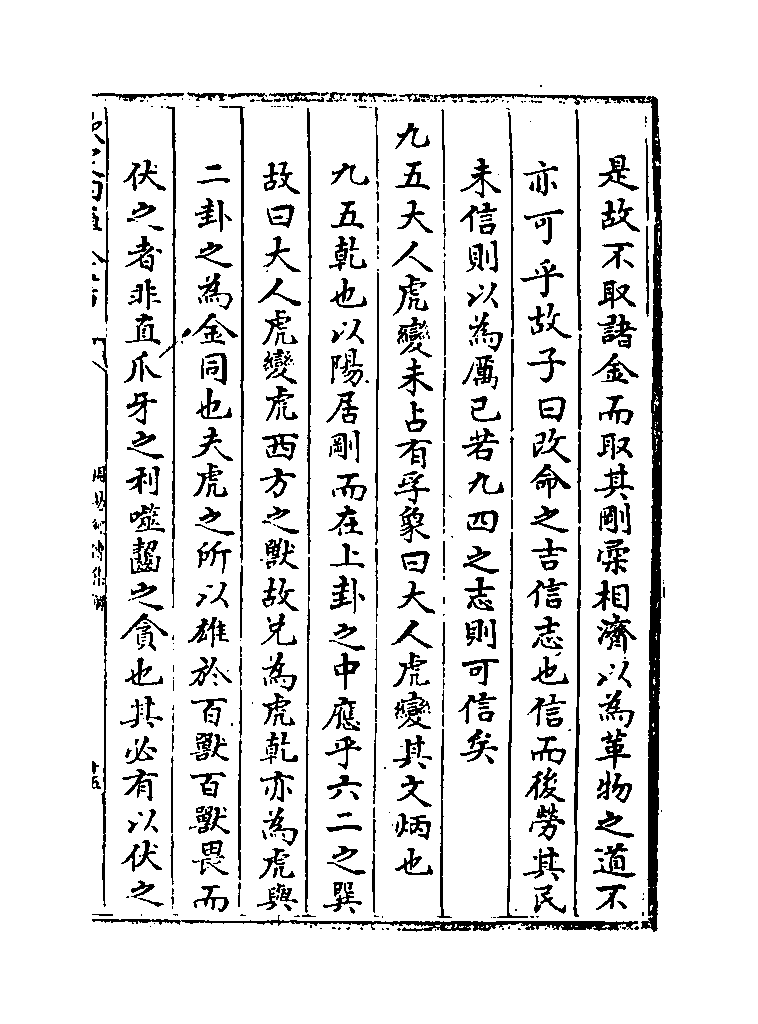 是故不取諸金而取其剛柔相濟以為革物之道不
亦可乎故子曰改命之吉信志也信而後勞其民
未信則以為厲己若九四之志則可信矣
九五大人虎變未占有孚象曰大人虎變其文炳也
九五乾也以陽居剛而在上卦之中應乎六二之巽
故曰大人虎變虎西方之獸故兌為虎乾亦為虎與
二卦之為金同也夫虎之所以雄於百獸百獸畏而
伏之者非直爪牙之利噬齧之貪也其必有以伏之